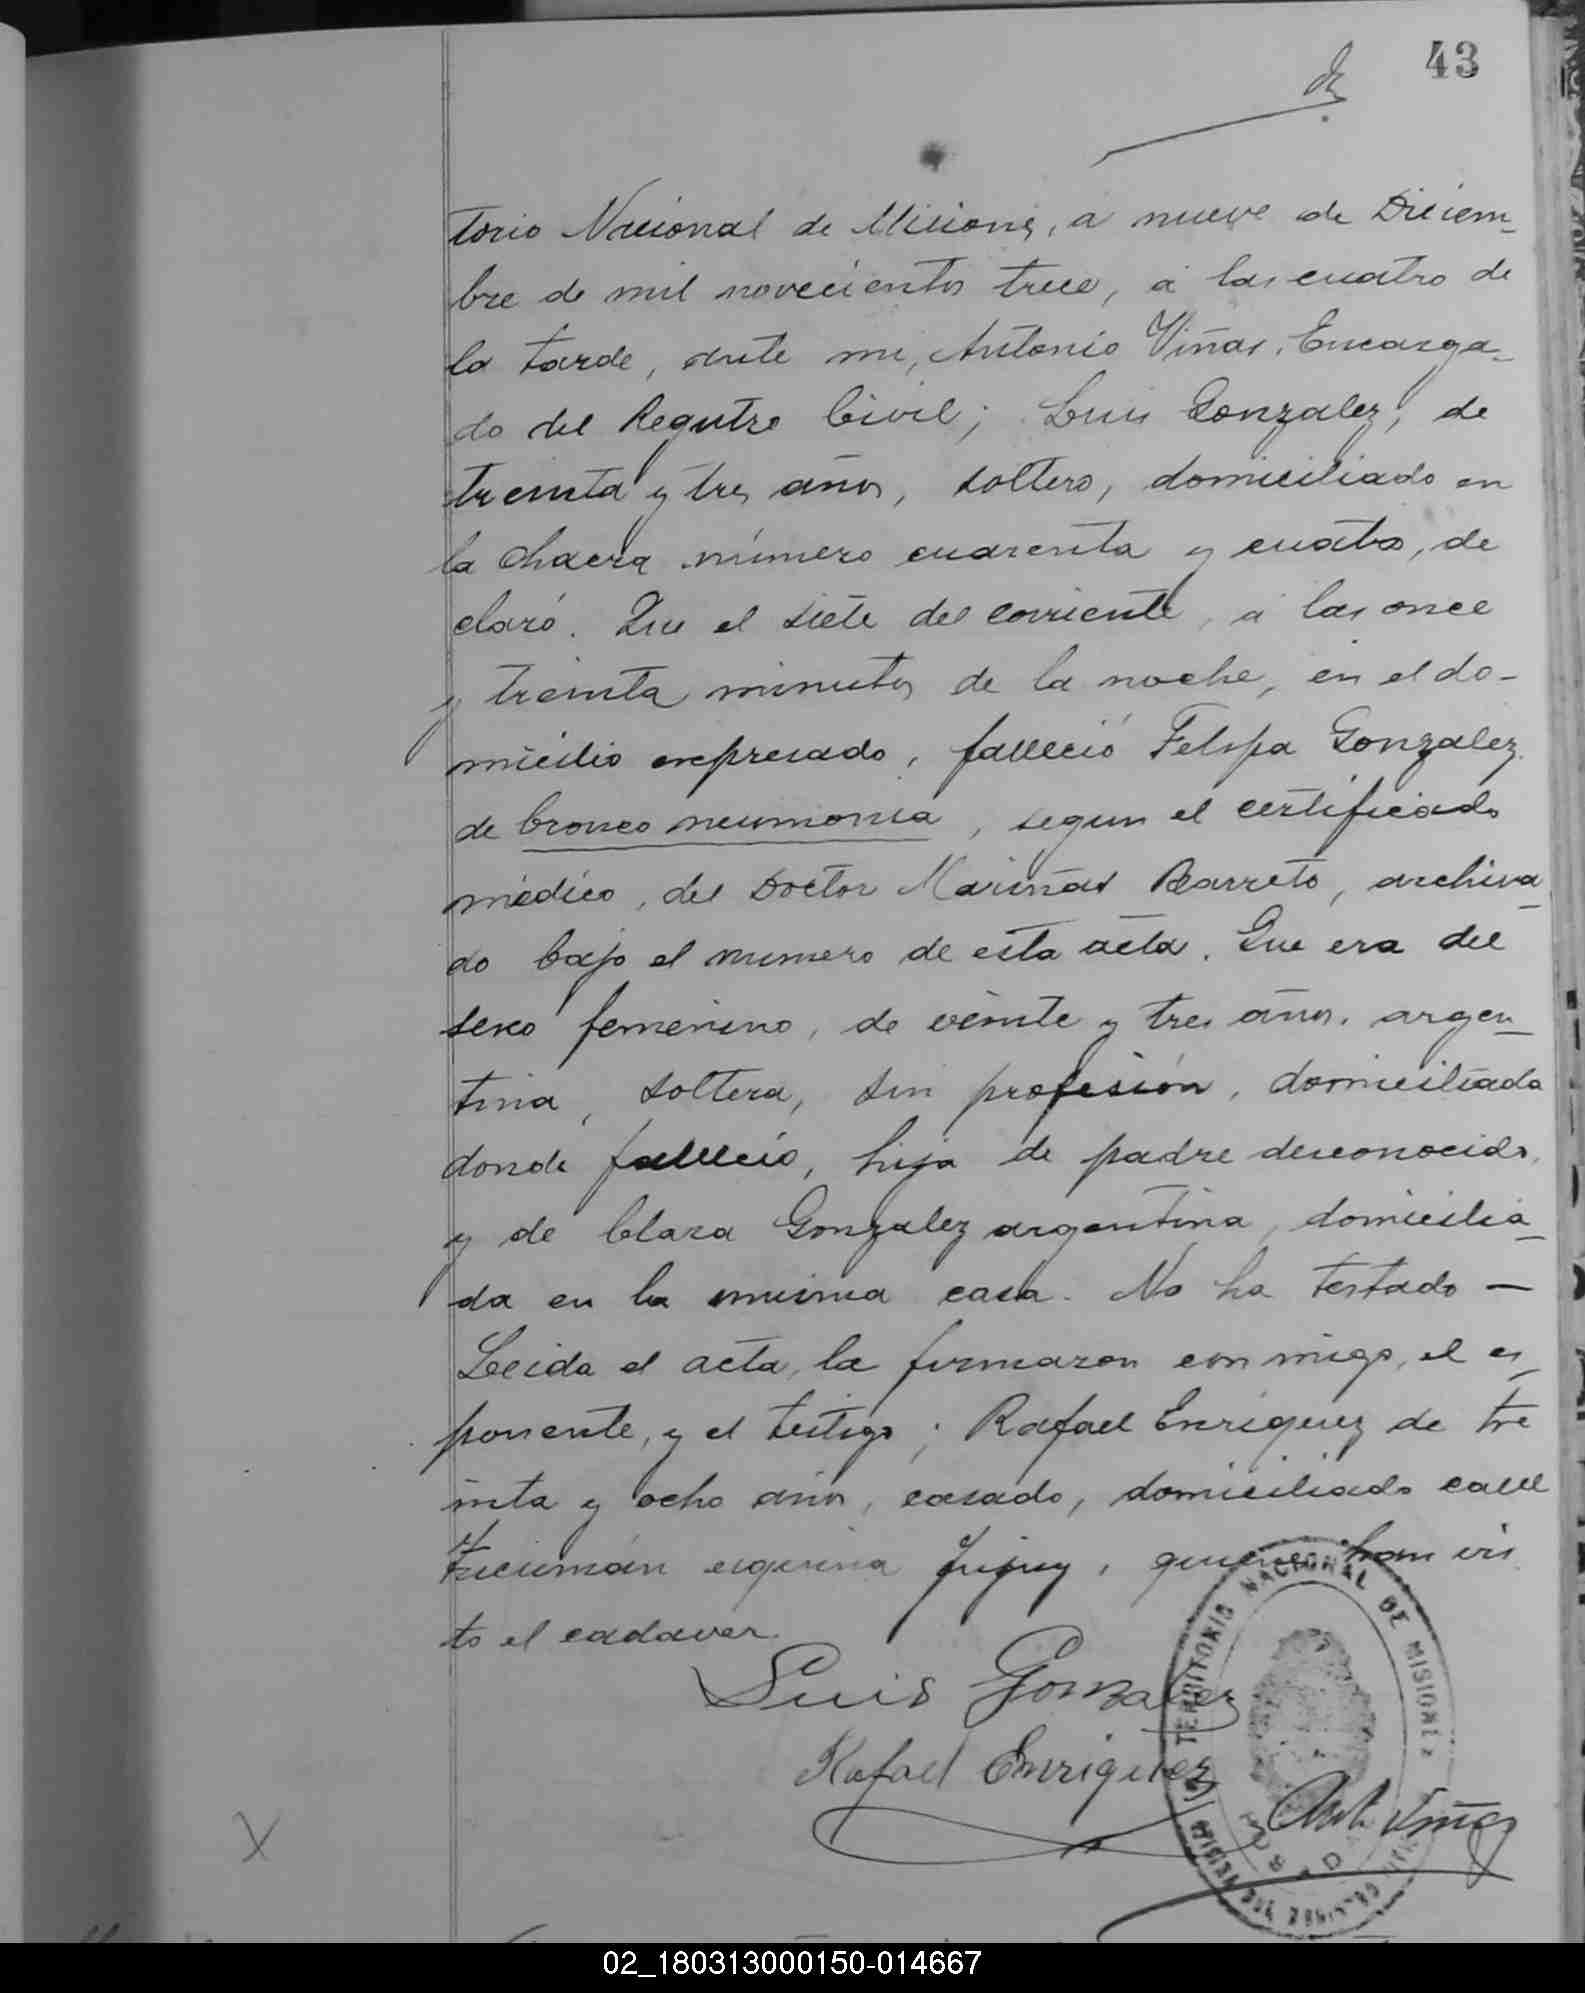 43
torio Nacional de Misiones, á nueve de Diciem_
bre de mil novecientos trece, á las cuatro de
la tarde, ante mi, Antonio Viñas, Encarga_
do del Registro Civil; Luis Gonzalez, de
treinta y tres años, soltero, domiciliado en
la chacra número cuarenta y cuatro, de
claró. Que el siete del corriente, á las once
y treinta minutos de la noche, en el do-
micilio expresado, falleció Felipa Gonzalez
de bronco neumonia, segun el certificado
médico, del Doctor Mariñas Barreto, archiva_
do bajo el numero de esta acta. Que era del
sexo femenino, de veinte y tres años, argen_
tina, soltera, sin profesión, domiciliada
donde falleció, hija de padre desconocido,
y de Clara Gonzalez argentina, domicilia_
da en la misma casa. No ha testado —
Leida el acta, la firmaron con migo, el es_
ponente, y el testigo; Rafael Enriquez de tre
inta y ocho años, casado, domiciliado calle
Tucumán esquina Jujuy, quienes han vis
to el cadaver.
Luis Gonzalez
Rafael Enriquez
Ant. Viñas
TERRITORIO NACIONAL DE MISIONES
POSADAS
02_180313000150-014667